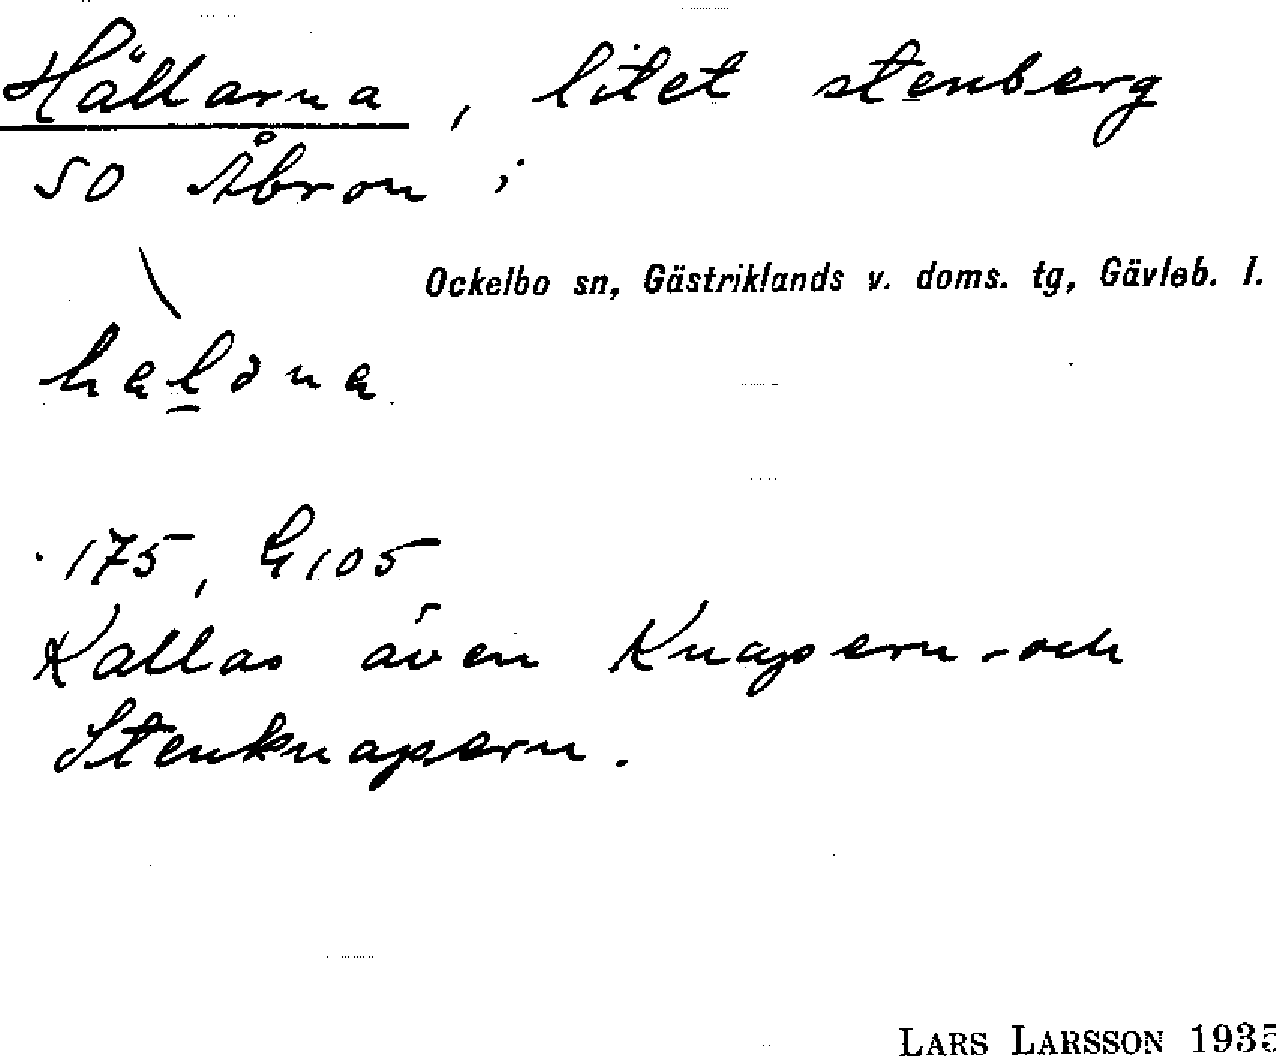 Hällarna, litet stenberg
SO Åbron;
Ockelbo sn, Gästriklands v. doms. tg, Gävleb. l.
haləna
175, G105
Kallas även Knapern- och
Stenknapern.
LARS LARSSON 1935